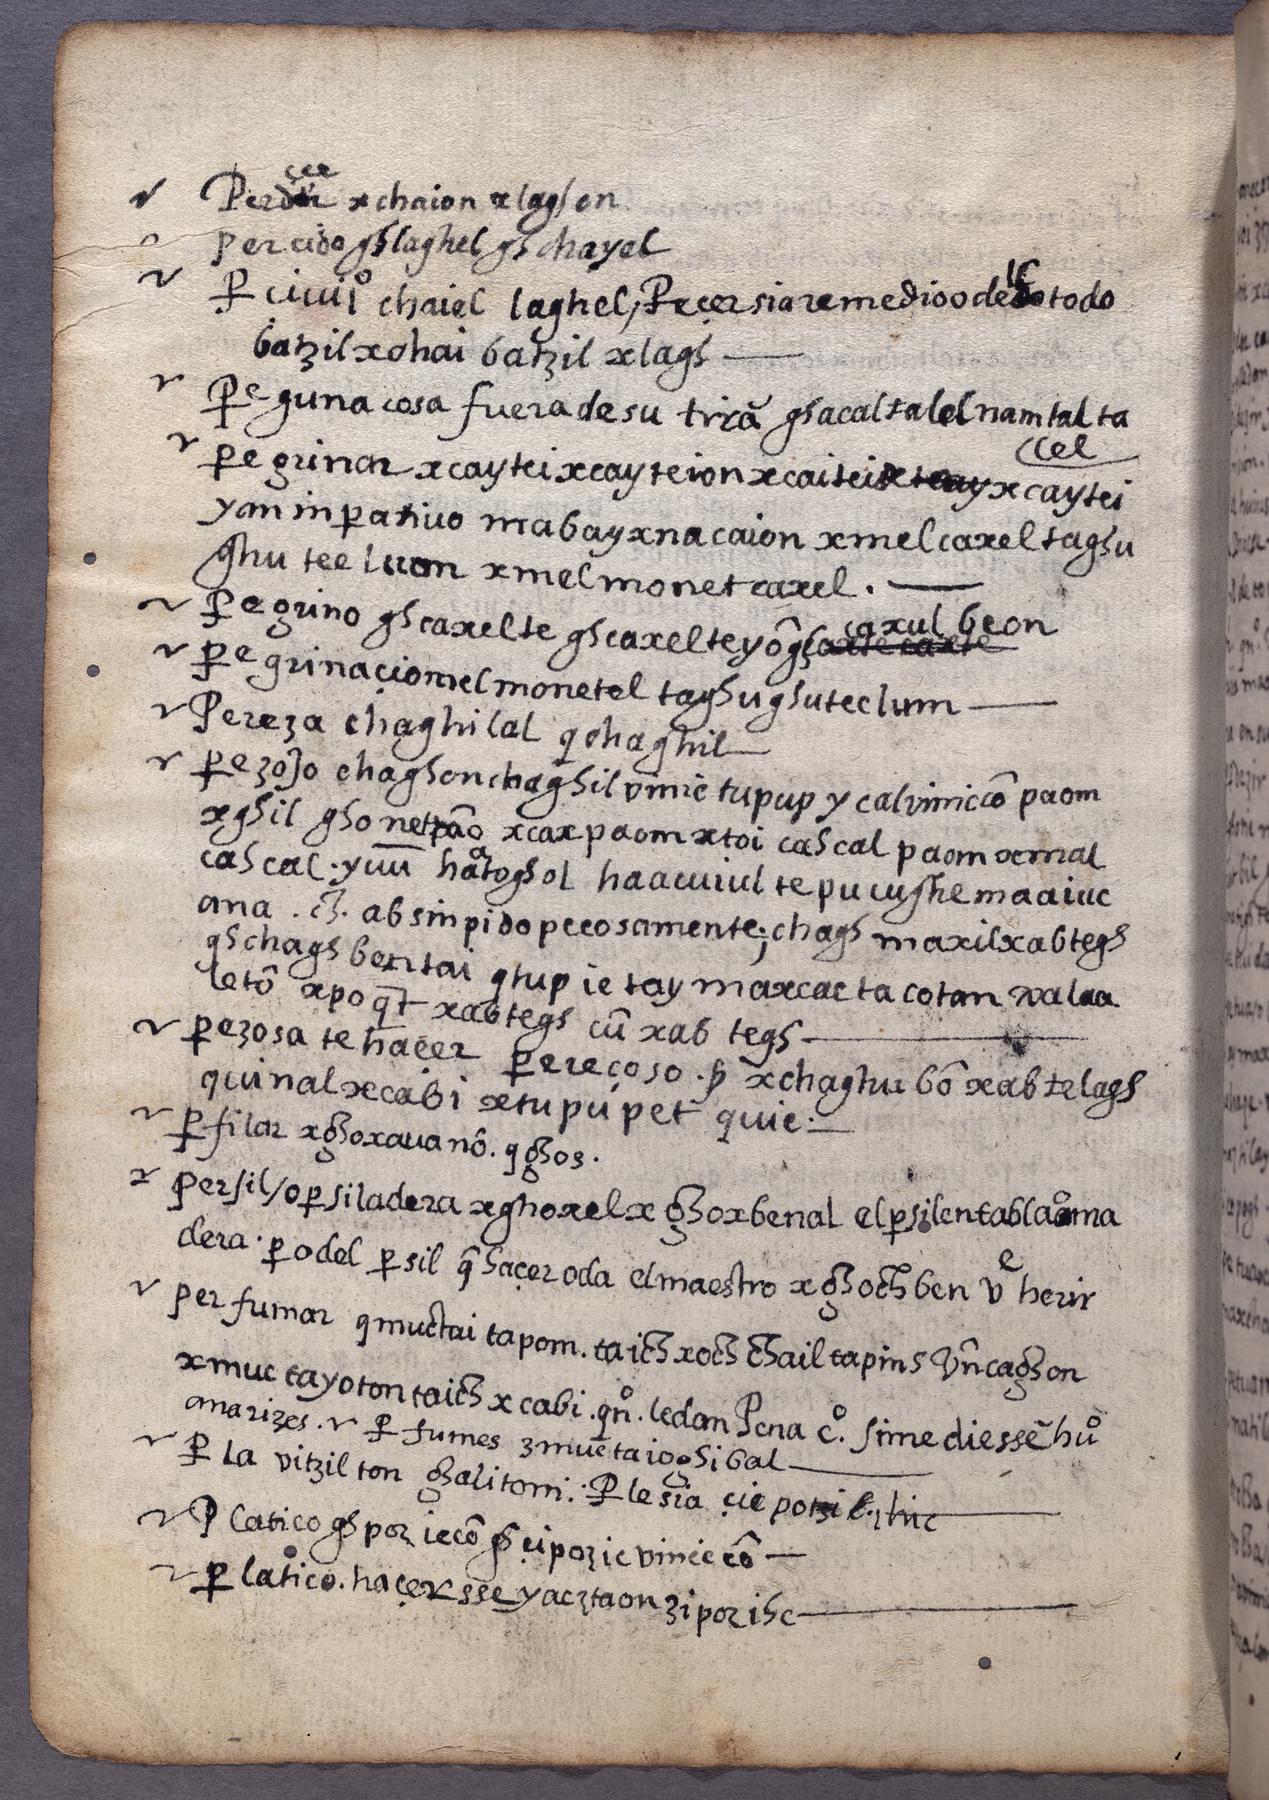 Per çee x chaion x laghon
percido ghlaghel gh chayel
P̱ çiuiº chaiel laghel, Peçer sia remedioo de todo
batzil x chai batzil x lagh
P̱eguna cosa fuera de su tirrã gh acal talel nam tal ta
p̱egrinar x caytei x cayteion x caitei x caytei cel
y an inp̱atiuo mabayxnacaion x mel caxel taghu
ghu tee lum x mel monet caxel.
P̱egrino gh caxelte gh caxelteyõ gh caxul beon
p̱egrinaçion mel monetel taghughuteclum
Pereza chaghilal q chaghil
p̱ezoso chaghon chaghil vinic tupup y cal vinic cõ paom
xghil gho x cax paom x toi cashcal paom x mal
cashcal. yuũ hatoghol haacuiul te pucughe maaiuc
ana. ch. ab sinpido pecosamente; chagh maxil xabtegh
gh chagh bentai qtup ie tay maxcac ta cotan xalaa
letõ xpo qt xabtegh cũ xab tegh
p̱ezosa te haçer p̱ereçoso. x chaghu bõ xab te lagh
quinal x cabi x tupupet quic.
p̱filar x ghoxauanõ. q ghos.
persil/o p̱siladera x ghoxel x ghoxbenal el p̱sil en tabla º ma
dera. p̱o del p̱sil q̃ haçer oda el maestro x ghoch ben vᵉ herir
perfumar q muctai ta pom. ta ich xoch chail ta pins vñ caghon
x muctayoton taich x cabi. qñº. le dan Pena cº. sime diessẽ huº
anarizes. p̱fumes zmuctaioghibal
P̱la vitzil ton ghalitom. P̱lesia çic potzil, hic
P̱latico gh poz iecõ gh çi pozic vinic cõ
p̱latico. haçersse yacztaon zi poz ihc